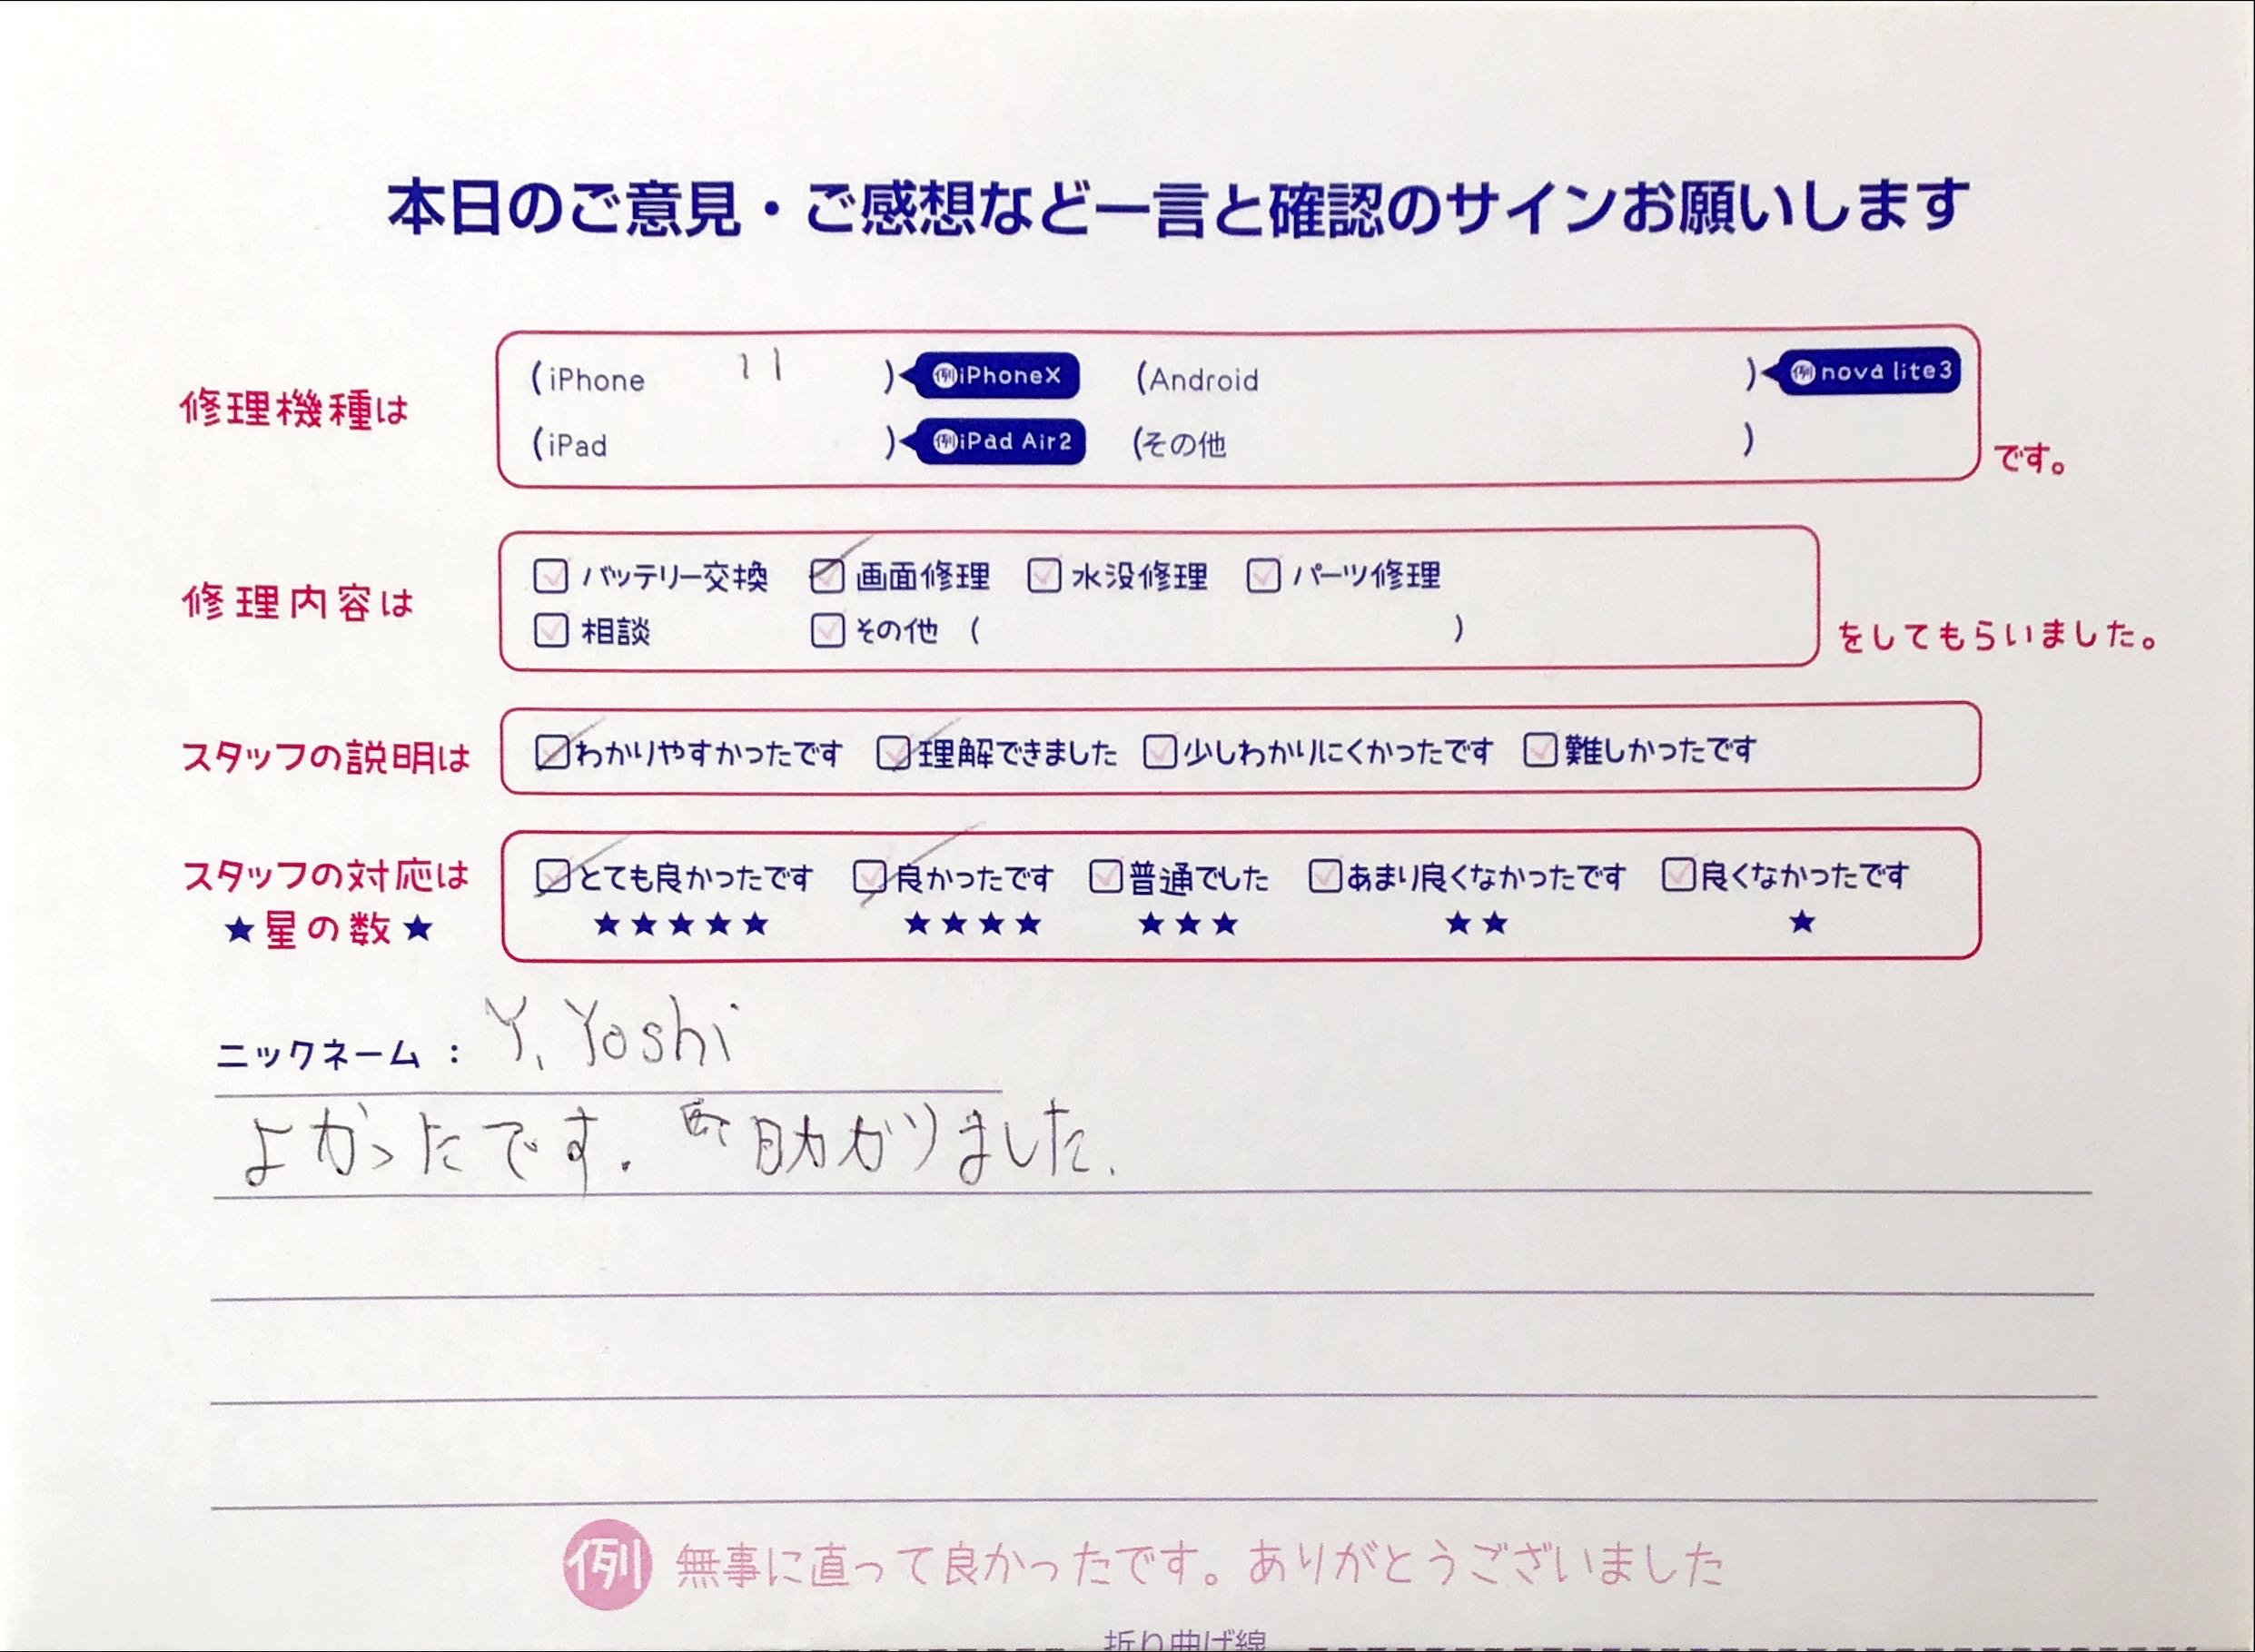 本日のご意見・ご感想など一言と確認のサインお願いします
修理機種は (iPhone 11 ) 例iPhoneX (Android ) 例nova lite3
(iPad ) 例iPad Air2 (その他 ) です。
修理内容は バッテリー交換 画面修理 水没修理 パーツ修理
相談 その他 ( ) をしてもらいました。
スタッフの説明は わかりやすかったです 理解できました 少しわかりにくかったです 難しかったです
スタッフの対応は とても良かったです 良かったです 普通でした あまり良くなかったです 良くなかったです
★星の数★ ★★★★★ ★★★★ ★★★ ★★ ★
ニックネーム : Y. Yoshi
よかったです. 助かりました.
例 無事に直って良かったです。ありがとうございました
折り曲げ線